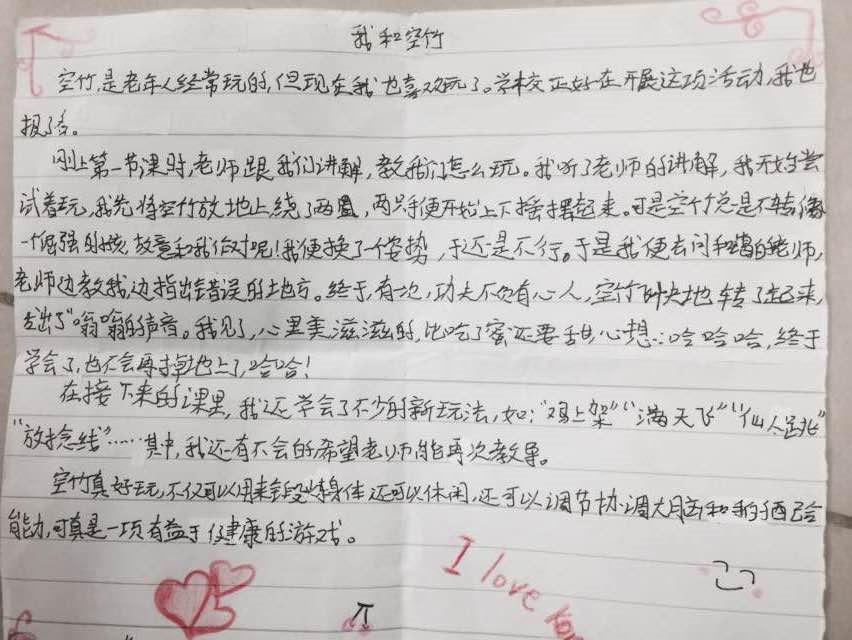 我和空竹
空竹,是老年人经常玩的,但现在我也喜欢玩了。学校正好在开展这项活动,我也
报了名。
刚上第一节课时,老师跟我们讲解,教我们怎么玩。我听了老师的讲解,我开始尝
试着玩,我先将空竹放地上绕了两圈,两只手便开始上下摇摆起来。可是空竹总是不转,像
一个倔强的孩,故意和我作对呢!我便换了个姿势,于还是不行。于是我便去问和蔼的老师,
老师边教我,边指出错误的地方。终于,有一次,功夫不负有心人,空竹快地转了起来,
发出了"嗡嗡"的声音。我见了,心里美滋滋的,比吃了蜜还要甜,心想:哈哈哈,终于
学会了,也不会再掉地上了,哈哈!
在接下来的课里,我还学会了不少的新玩法,如:"鸡上架""满天飞""仙人跳"
"放捻线"……其中,我还有不会的希望老师能再次教导。
空竹真好玩,不仅可以用来锻炼身体还可以休闲,还可以调节协调大脑和手的配合
能力,可真是一项有益于健康的游戏。
I love